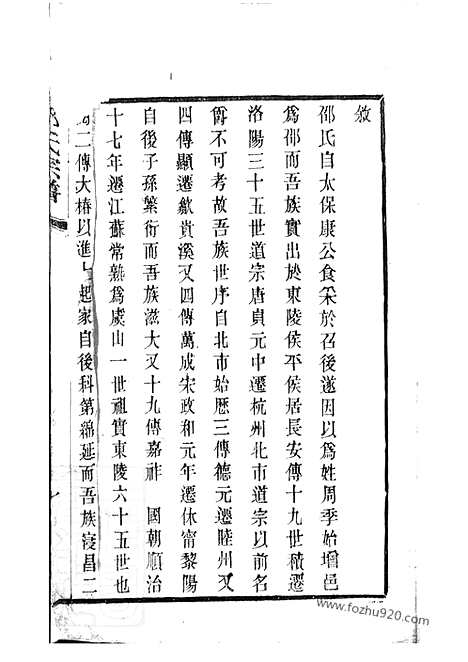 敘
邵氏自太保康公食采於召後遂因以為姓周季始增邑
為邵而吾族實出於東陵侯平侯居長安傳十九世積遷
洛陽三十五世道宗唐貞元中遷杭州北市道宗以前名
爵不可考故吾族世序自北市始歷三傳德元遷睦州又
四傳顯遷歙貴溪又四傳萬成宋政和元年遷休甯黎陽
自後子孫繁衍而吾族滋大又十九傳嘉祚　國朝順治
十七年遷江蘇常熟為虞山一世祖實東陵六十五世也
二傳大椿以進士起家自後科第綿延而吾族寖昌二
氏宗譜
www.fozhu920.com